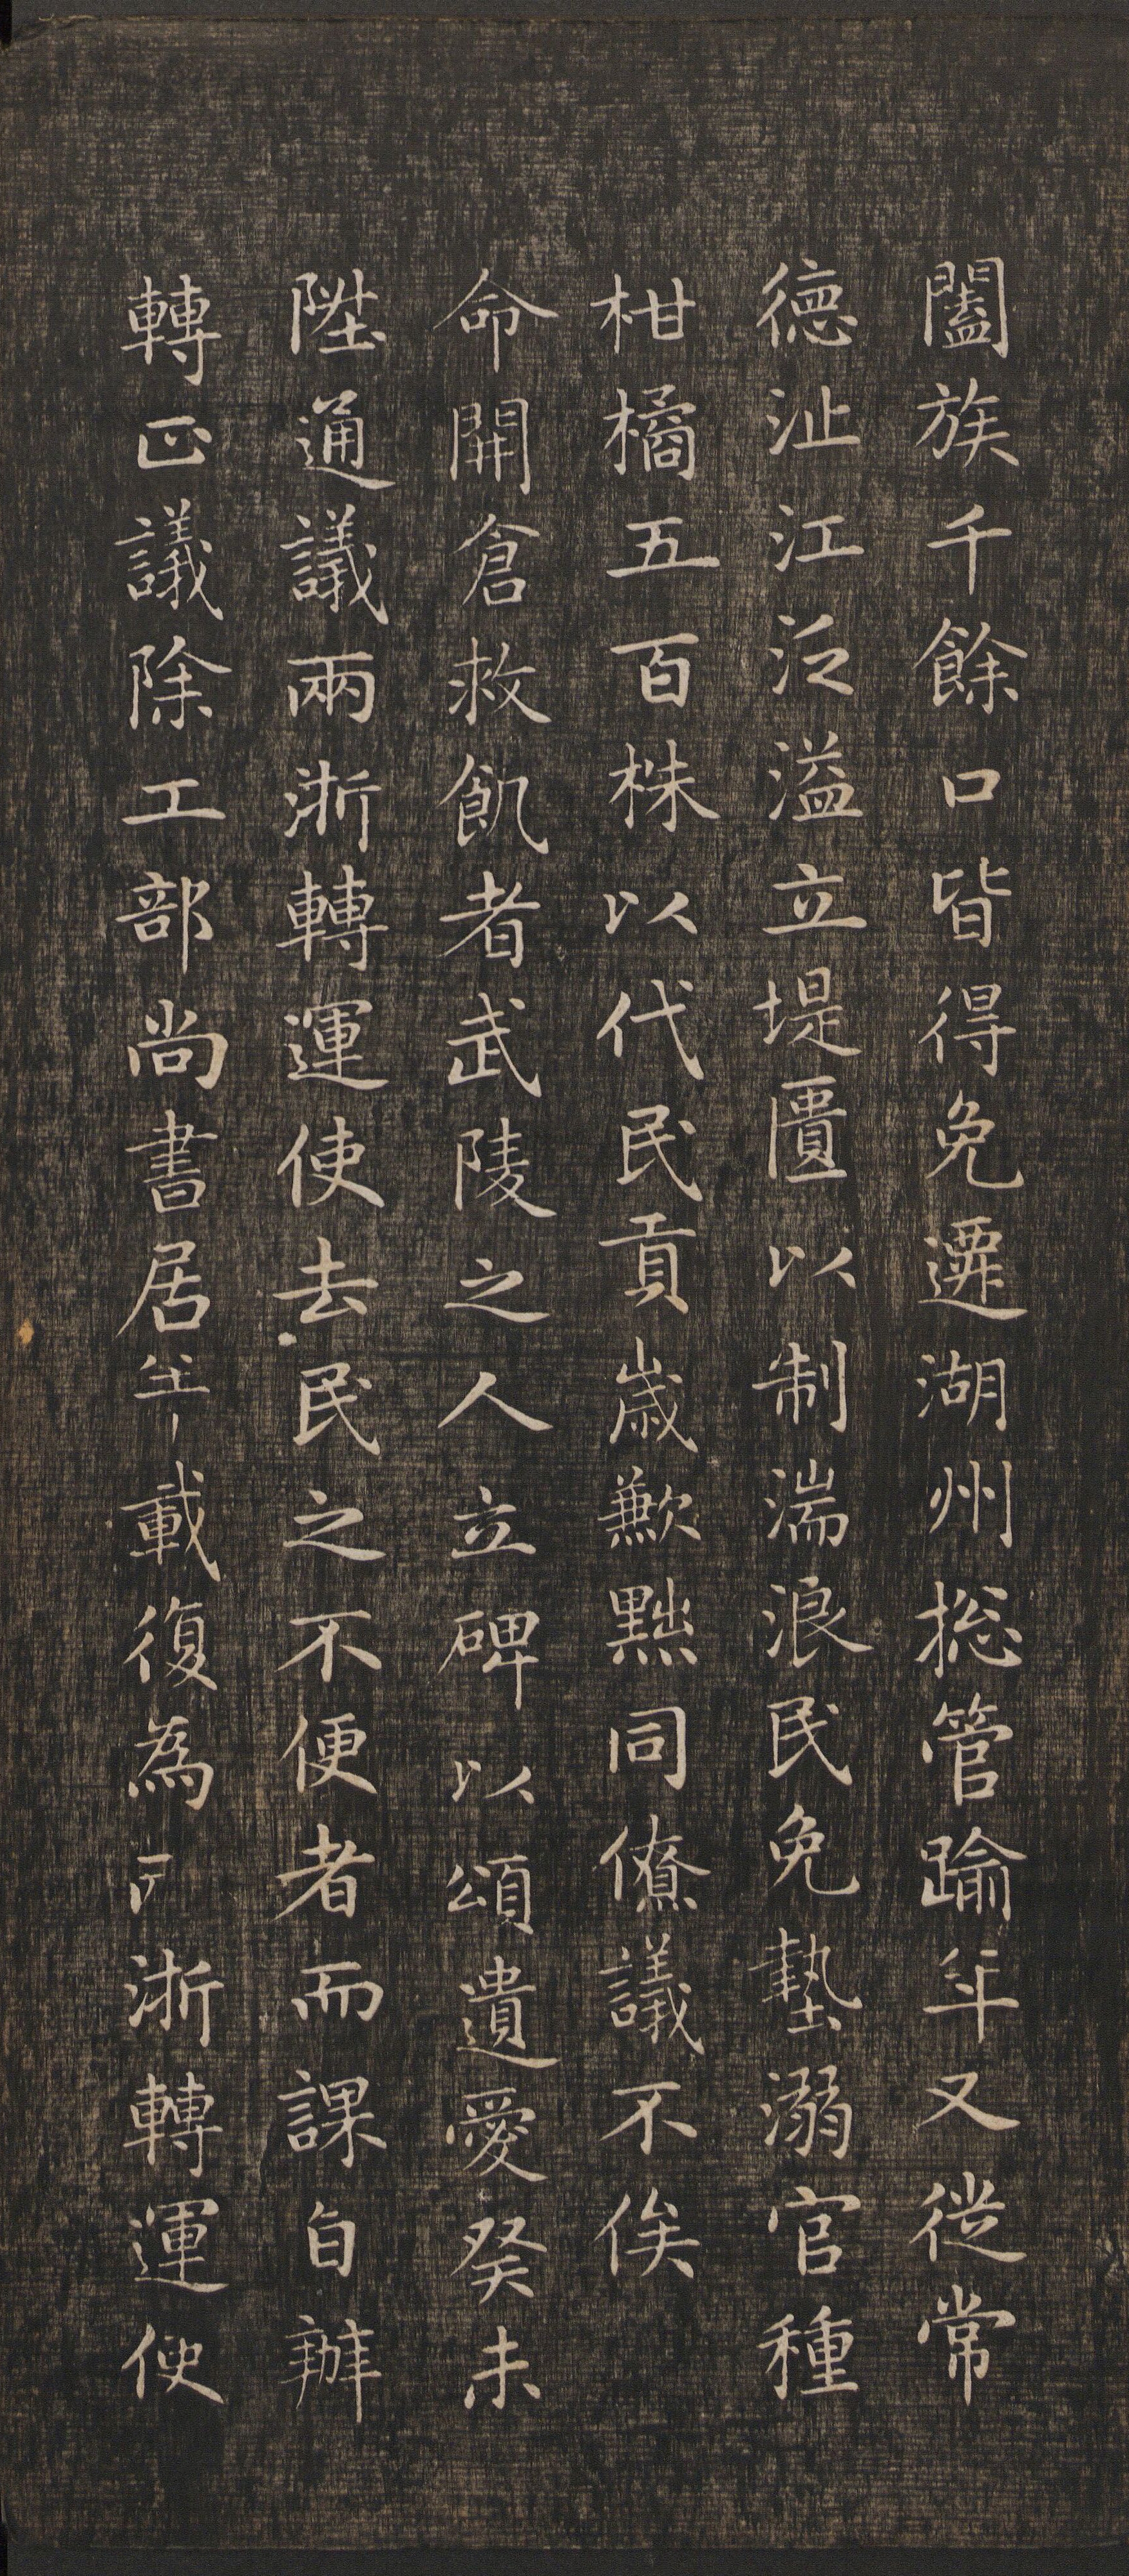 闔族千餘口皆得免遷湖州總管踰年又從常
德沚江泛溢立堤匱以制湍浪民免墊溺官種
柑橘五百株以代民貢歲歉黜同僚議不俟
命開倉救飢者武陵之人立碑以頌遺愛癸未
陞通議兩浙轉運使去民之不便者而課自辦
轉正議除工部尚書居半載復為兩浙轉運使